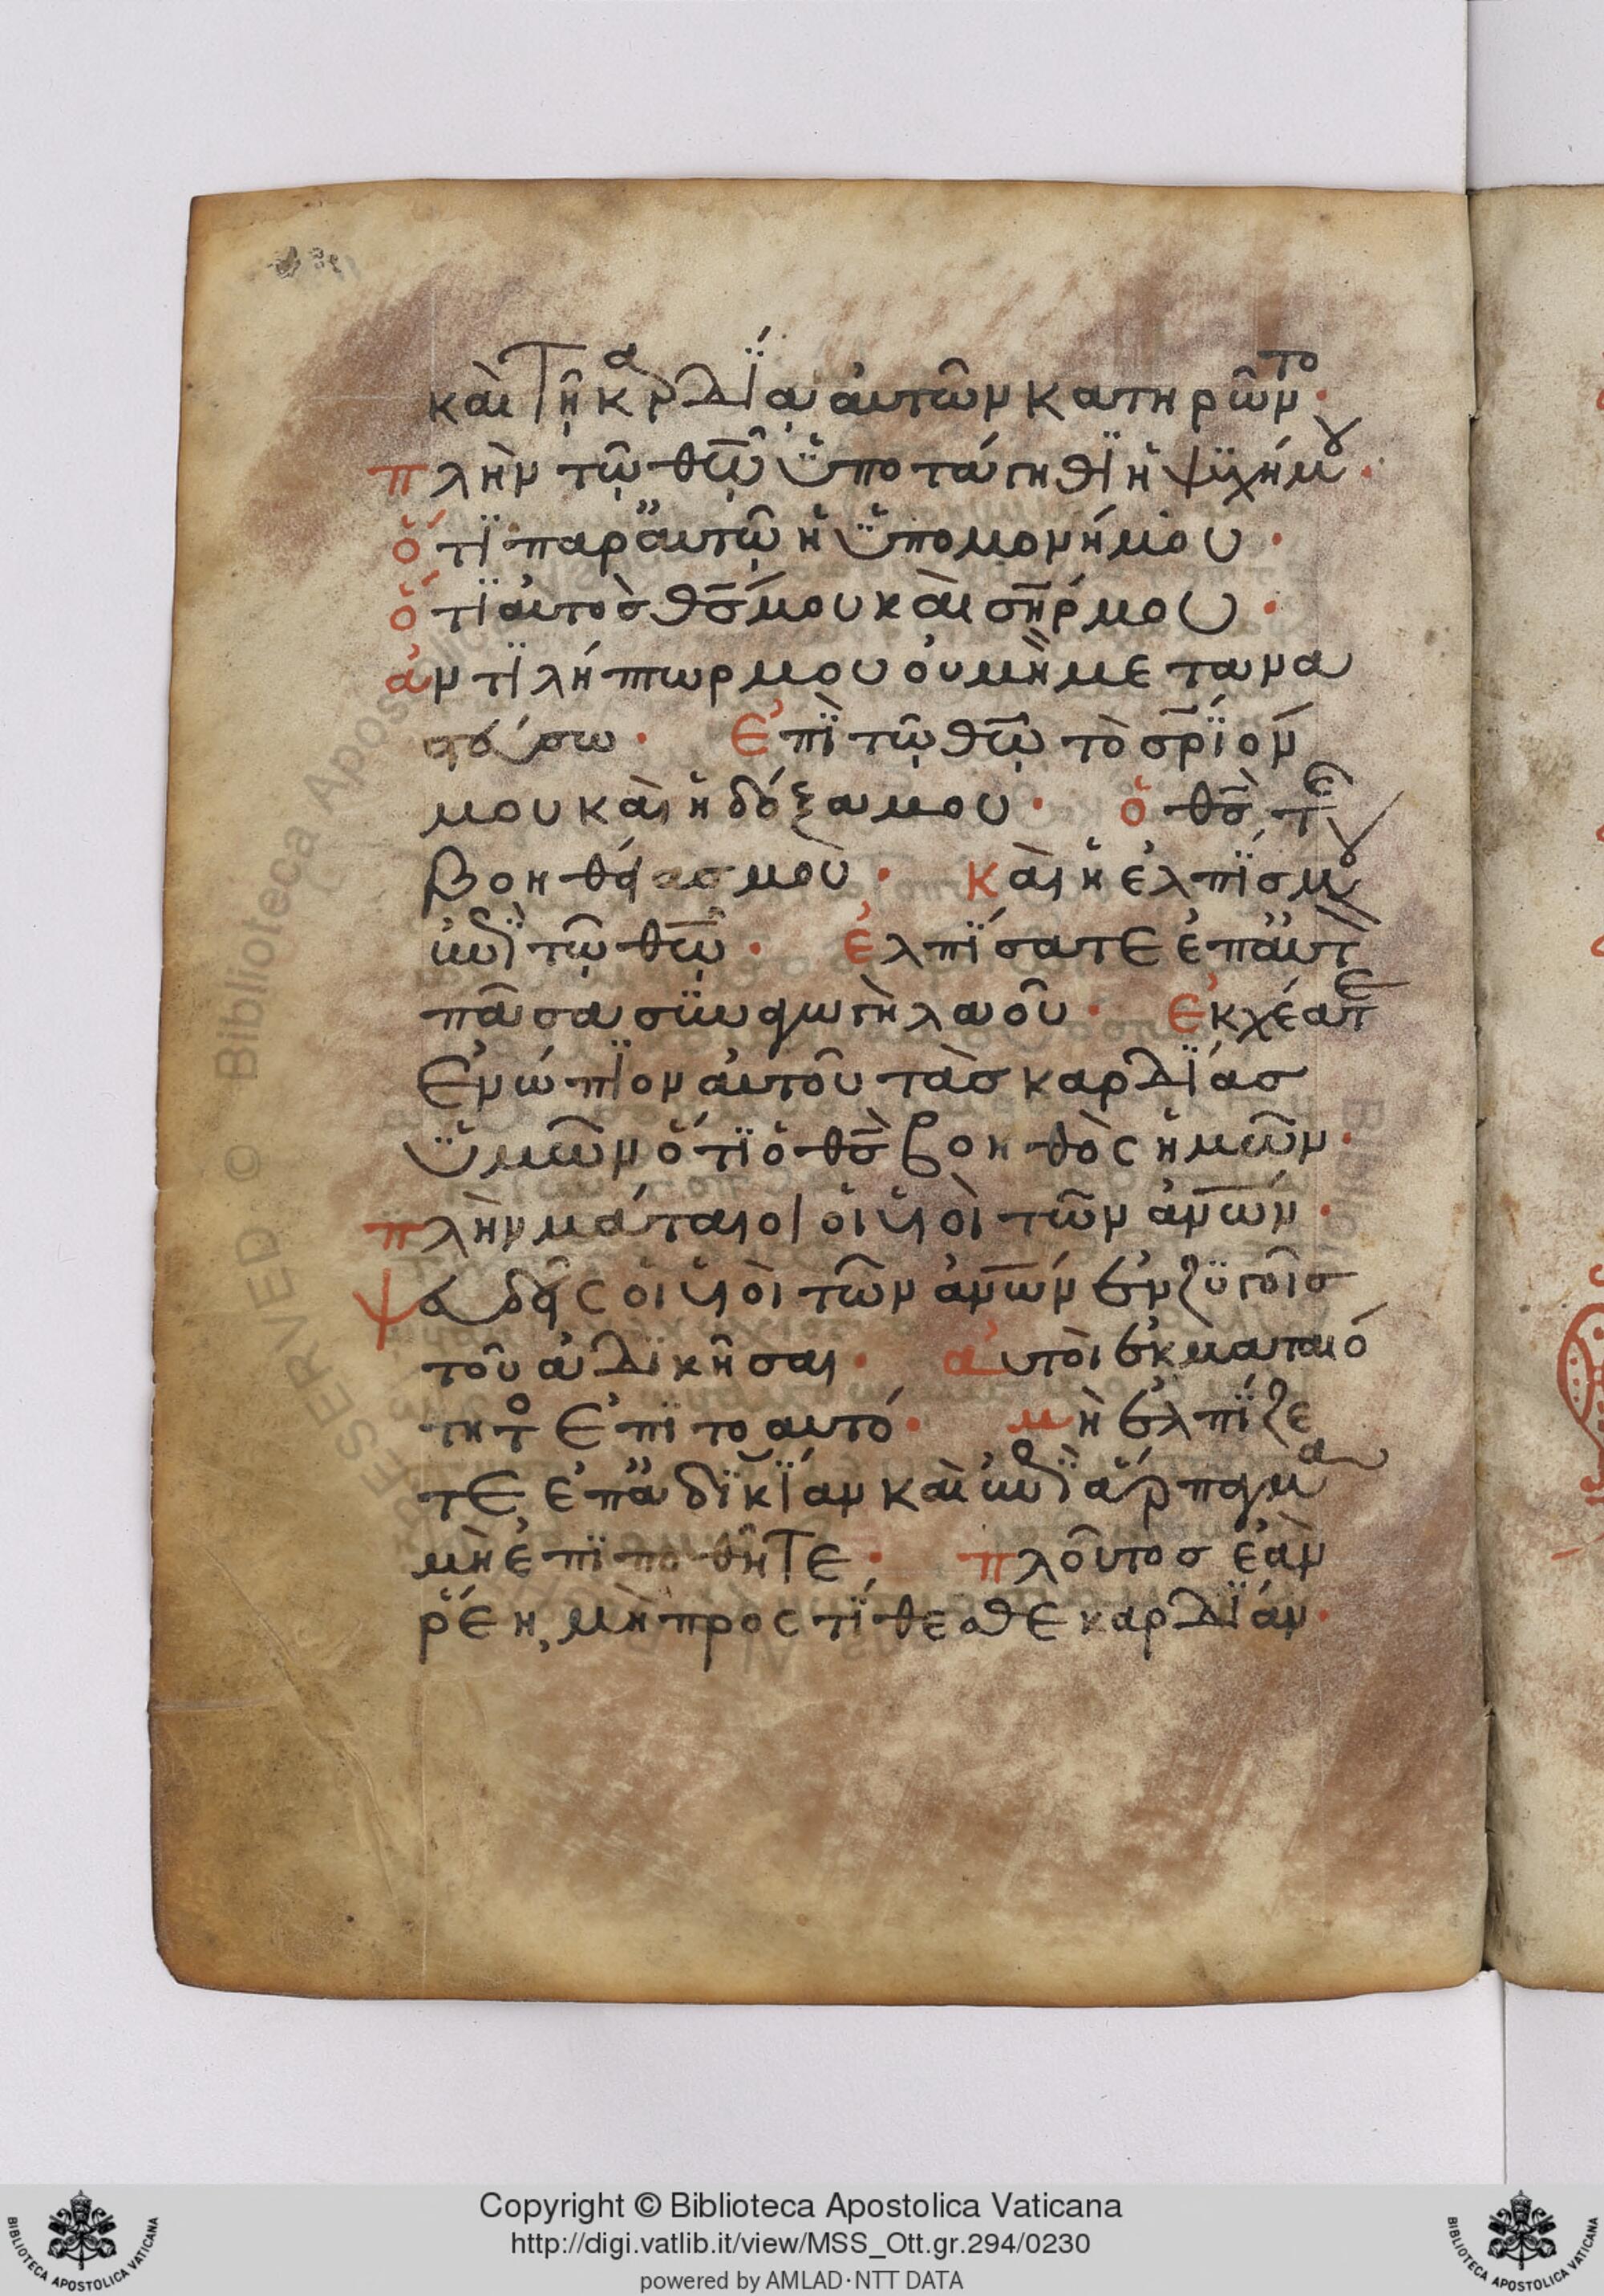 καὶ τῆ κρδΐα αὐτῶν κατηρῶντο·
πλὴν τῶ θῶ ὑποτάγηθϊ ἡ ψϋχήμου·
ὅτϊ παρ' αὐτῶ ἡ ὑπομονήμου·
ὅτϊ αὐτὸσ θσ μου καὶ σηρ μου·
ἀντϊλήπτωρ μου οὐ μὴ μετανα
στεύσω· Ἐπὶ τῶ θῶ τὸ σρϊόν
μου καὶ ἡ δόξα μου· ὁ θσ τῆσ
βοηθείασ μου· Καὶ ἡ ἐλπίσ μου
ἐπὶ τῶ θῶ· ἐλπίσατε ἐπ' αὐτὸν
πᾶσα συναγωγὴ λαοῦ· Ἐκχέατε
Ἐνώπϊον αὐτοῦ τὰσ καρδΐασ
ὑμῶν ὅτϊ ὁ θσ βοηθὸς ἡμῶν·
πλὴν μάταιοι οἱ υἱοὶ τῶν ἀνων·
ψευδεῖς οἱ υἱοὶ τῶν ἀνων ἐν ζϋγοῖσ
τοῦ ἀδϊκῆσαι· αὐτοὶ ἐκ ματαιό
τητοσ Ἐπὶ το αυτό· μὴ ἐλπίζε
τε ἐπ' ἀδϊκΐαν καὶ ἐπὶ ἅρπαγμα
μὴ ἐπϊποθῆτε· πλοῦτοσ ἐὰν
ῥέη, μὴ προςτίθεσθε καρδΐαν·
Copyright © Biblioteca Apostolica Vaticana
http://digi.vatlib.it/view/MSS_Ott.gr.294/0230
powered by AMLAD·NTT DATA
BIBLIOTECA APOSTOLICA VATICANA
BIBLIOTECA APOSTOLICA VATICANA